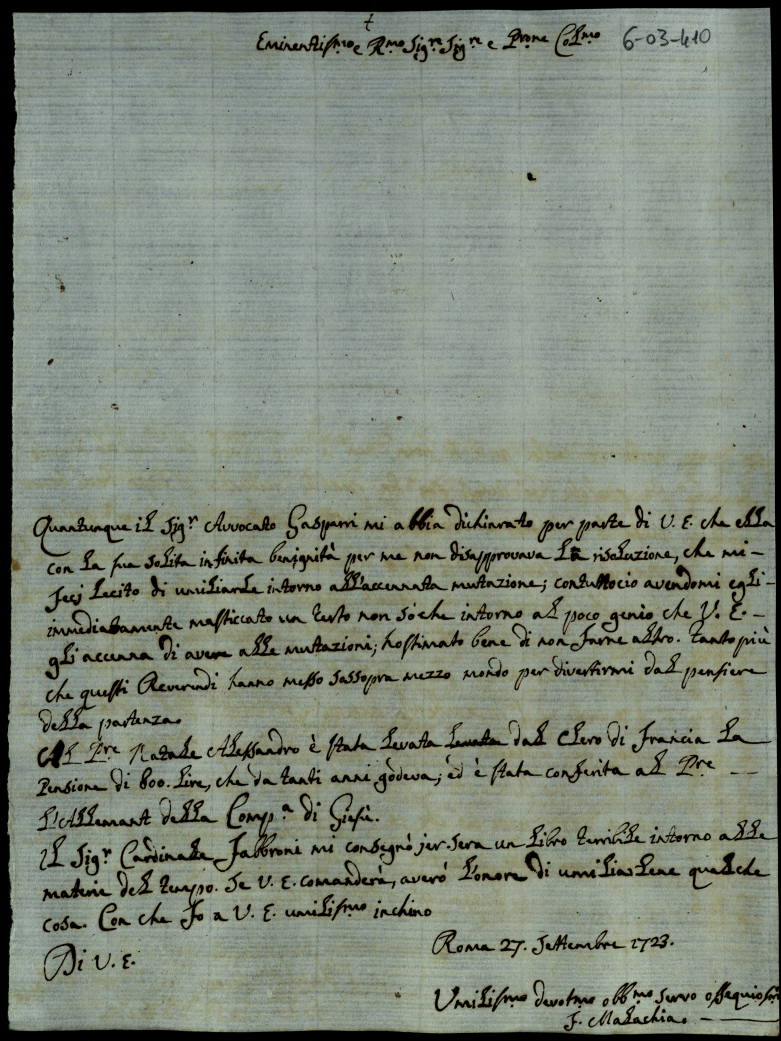 †
Eminentissmo e Rmo Sigre Sigre e Prone Colmo 6-03-410
Quantunque il Sigr Avvocato Gasparri mi abbia dichiarato per parte di V. E. che ella
con la sua solita infinita benignità per me non disapprovava la risoluzione, che mi –
feci lecito di umiliarle intorno all'accennata mutazione; contuttociò avendomi egli –
immediatamente masticcato un certo non sò che intorno al poco genio che V. E. –
gl'accenna di avere alle mutazioni; hò stimato bene di non farne altro. Tanto più
che questi Reverendi hanno messo sassopra mezzo mondo per divertirmi dal pensiere
della partenza.
Al Pre Natale Alessandro è stata levata levata dal Clero di Francia la
Pensione di 800. lire, che da tanti anni godeva; ed è stata conferita al Pre – –
L'Allemant della Compa di Giesù.
Il Sigr Cardinale Fabbroni mi consegnò jer sera un libro terribile intorno alle
materie del tempo. Se V. E. comanderà, averò l'onore di umiliarlene qualche
cosa. Con che Io a V. E. umilissmo inchino
Di V. E.
Roma 27. Settembre 1723.
Umilissmo devotmo obbmo servo ossequiosmo
F. Malachia. –